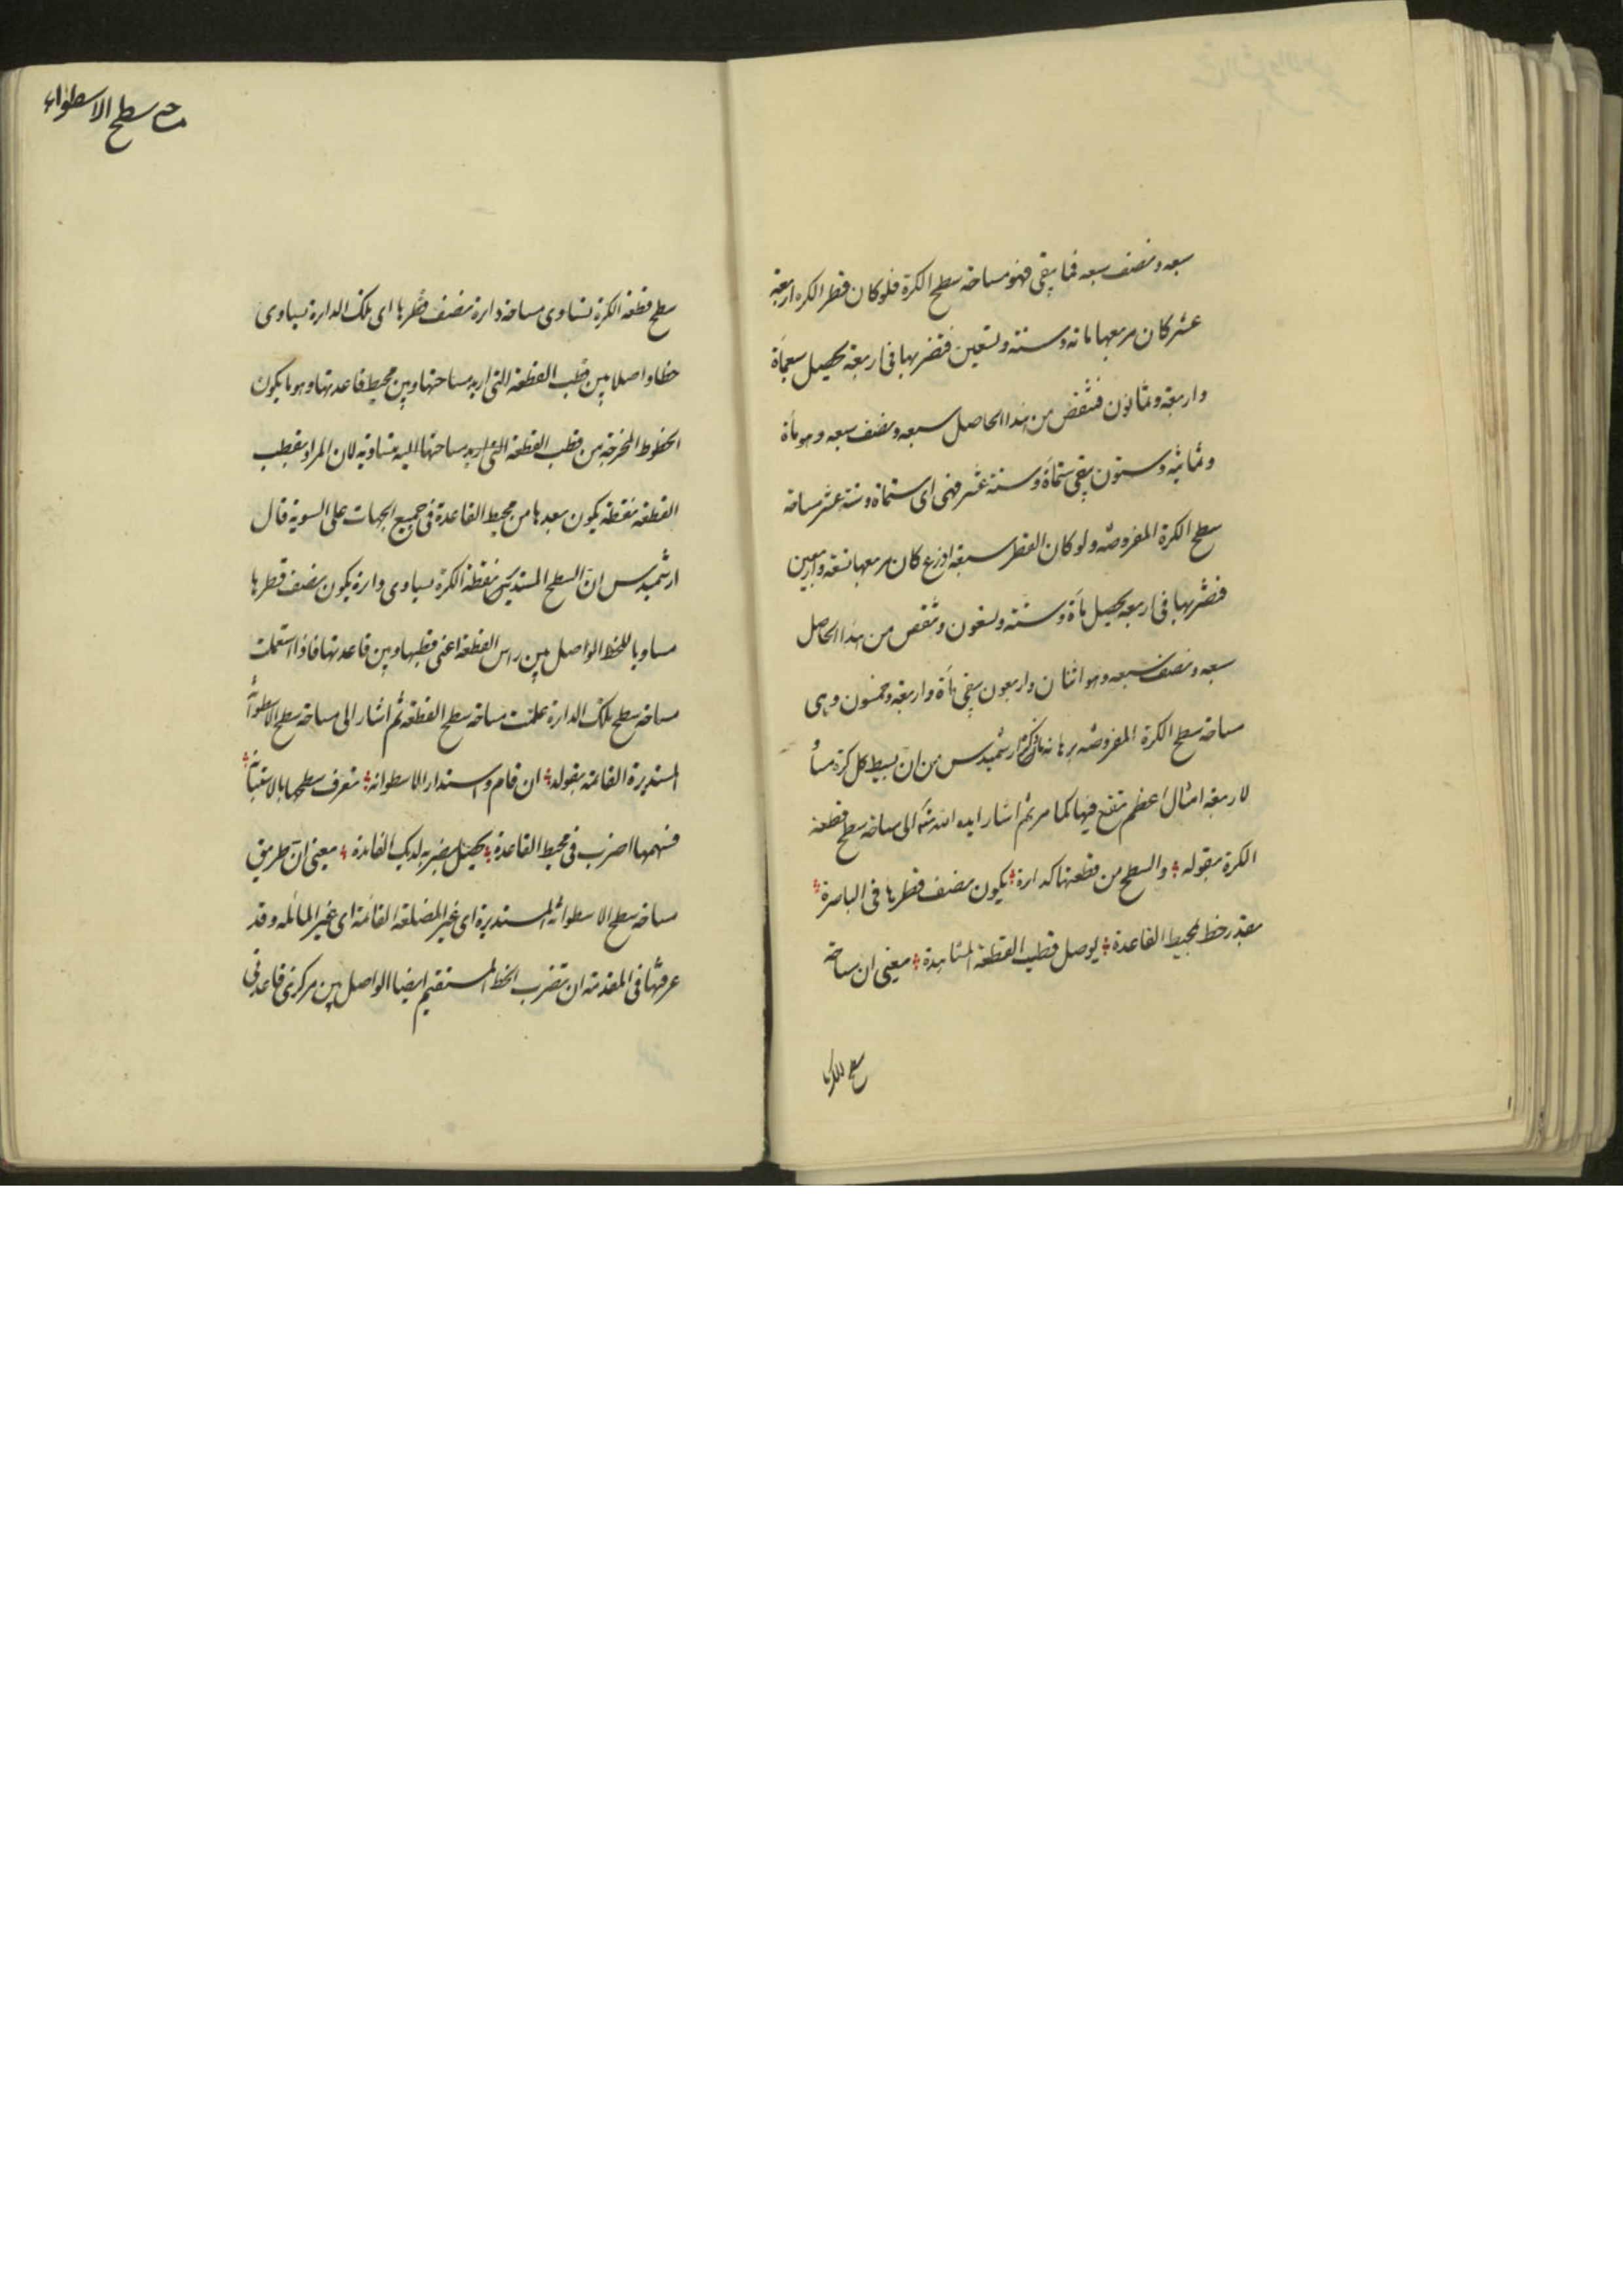 سبعه ونصف سبعه فما يبقى فهو مساحة سطح الكرة فلو كان قطر الكره اربعة
عشر كان مربعها مائه وستة وتسعين فتضربها فى اربعة يحصل سبعمأة
واربعة وثمانون فتنقص من هذا الحاصل سبعه ونصف سبعه وهو مأة
وثمانيه وستون يبقى ستمأة وستة عشر فهى اى ستمأة وستة عشر مساحة
سطح الكرة المفروضه ولو كان القطر سبعة اذرع كان مربعها تسعة واربعين
فتضربها فى اربعه يحصل مأة وستة وتسعون وتنقص من هذا الحاصل
سبعه ونصف سبعه وهو اثنان واربعون يبقى مأة واربعة وخمسون وهى
مساحة سطح الكرة المفروضه برهانه ما ذكره ارشميدس من ان بسيط كل كرة مساو
لاربعة امثال اعظم تقع فيها كما مر ثم اشار ايده الله الى مساحة سطح قطعة
الكرة بقوله والسطح من قطعتها كدارة يكون نصف قطرها فى الباصرة
بقدر خط لمحيط القاعدة يوصل قطب القطعة المشاهدة يعنى ان مساحة
سطح الكرة
مساحة سطح الاسطوانه
سطح قطعة الكرة تساوى مساحة دارة نصف قطرها اى تلك الدارة يساوى
خطا واصلا بين قطب القطعة التى اريد مساحتها وبين محيط قاعدتها وهو ما يكون
الخطوط المخرجة من قطب القطعة التى اريد مساحتها اليه متساويه لان المراد بقطب
القطعة نقطة يكون بعدها من محيط القاعدة فى جميع الجهات على السوية قال
ارشميدس ان السطح المستدير من قطعة الكرة يساوى دارة يكون نصف قطرها
مساويا للخط الواصل بين راس القطعة اعنى قطبها وبين قاعدتها فاذا استعملت
مساحة سطح تلك الدارة علمت مساحة سطح القطعة ثم اشار الى مساحة سطح الاسطوانة
المستديرة القائمة بقوله ان قام واستدار الاسطوانه تعرف سطحها بالاستبانه
فسهمها اضرب فى محيط القاعدة يحصل بضربه لديك الفائدة يعنى ان طريق
مساحة سطح الاسطوانة المستديرة اى غير المضلعة القائمة اى غير المائله وقد
عرفتها فى المقدمة ان تضرب الخط المستقيم ايضا الواصل بين مركزى قاعدتى